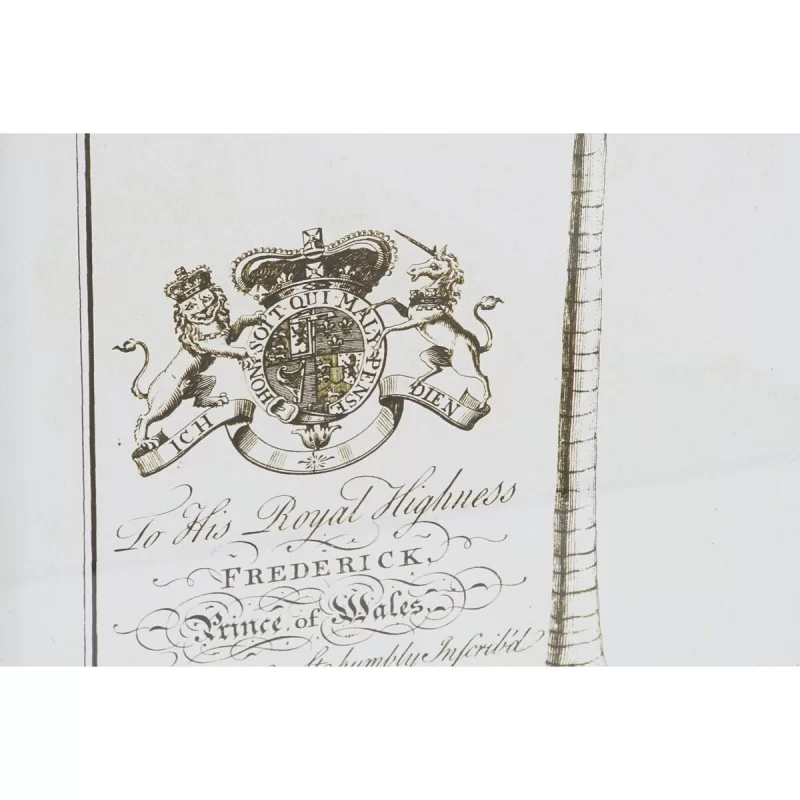 HONI SOIT QUI MAL Y PENSE
ICH DIEN
To His Royal Highness
FREDERICK,
Prince of Wales,
humbly Inſcrib'd